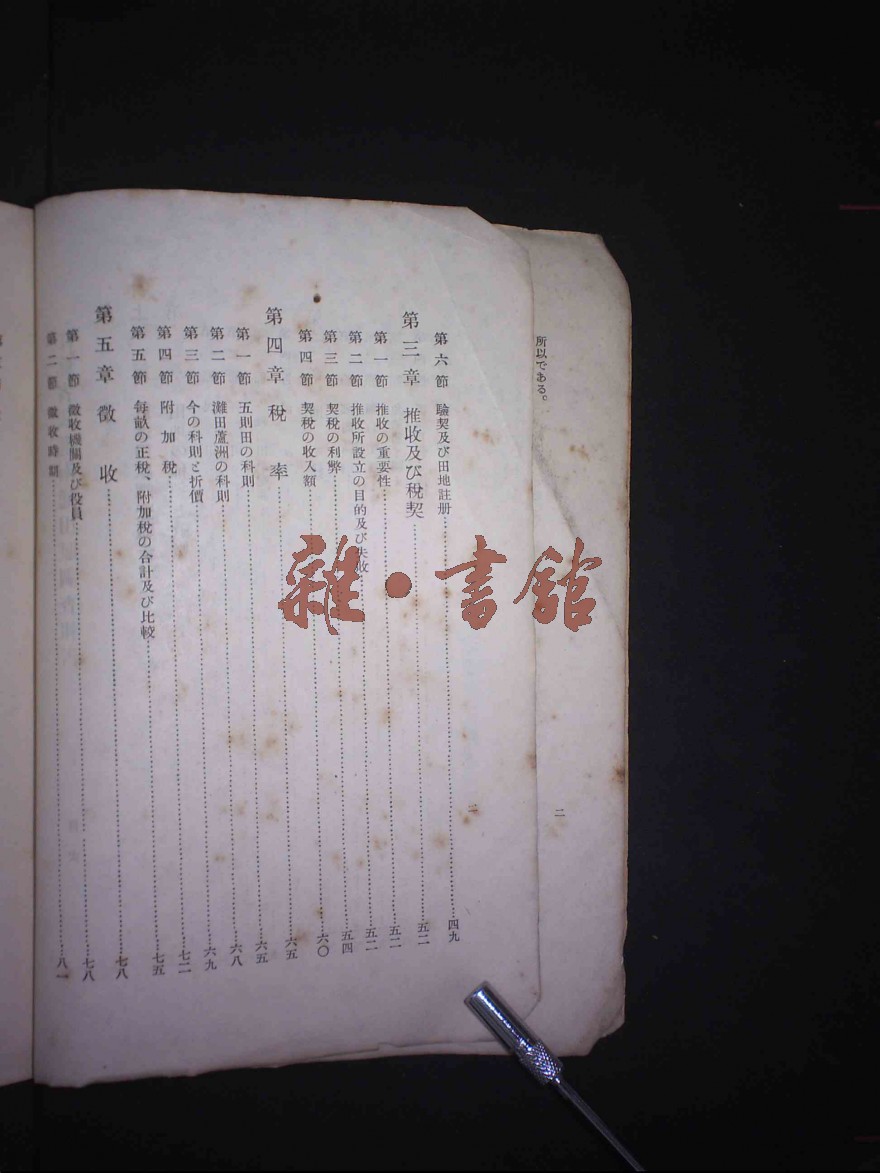 所以である。
二
第六節 驗契及び田地註册 四九
第三章 推收及び稅契 五二
第一節 推收の重要性 五二
第二節 推收所設立の目的及び失敗 五二
第三節 契稅の利弊 五四
第四節 契稅の收入額 六〇
第四章 稅率 六五
第一節 五則田の科則 六五
第二節 灘田蘆洲の科則 六八
第三節 今の科則と折價 六九
第四節 附加稅 七二
第五節 每畝の正稅、附加稅の合計及び比較 七五
第五章 徵收 七八
第一節 徵收機關及び役員 七八
第二節 徵收時期 八一
二
雜·書館